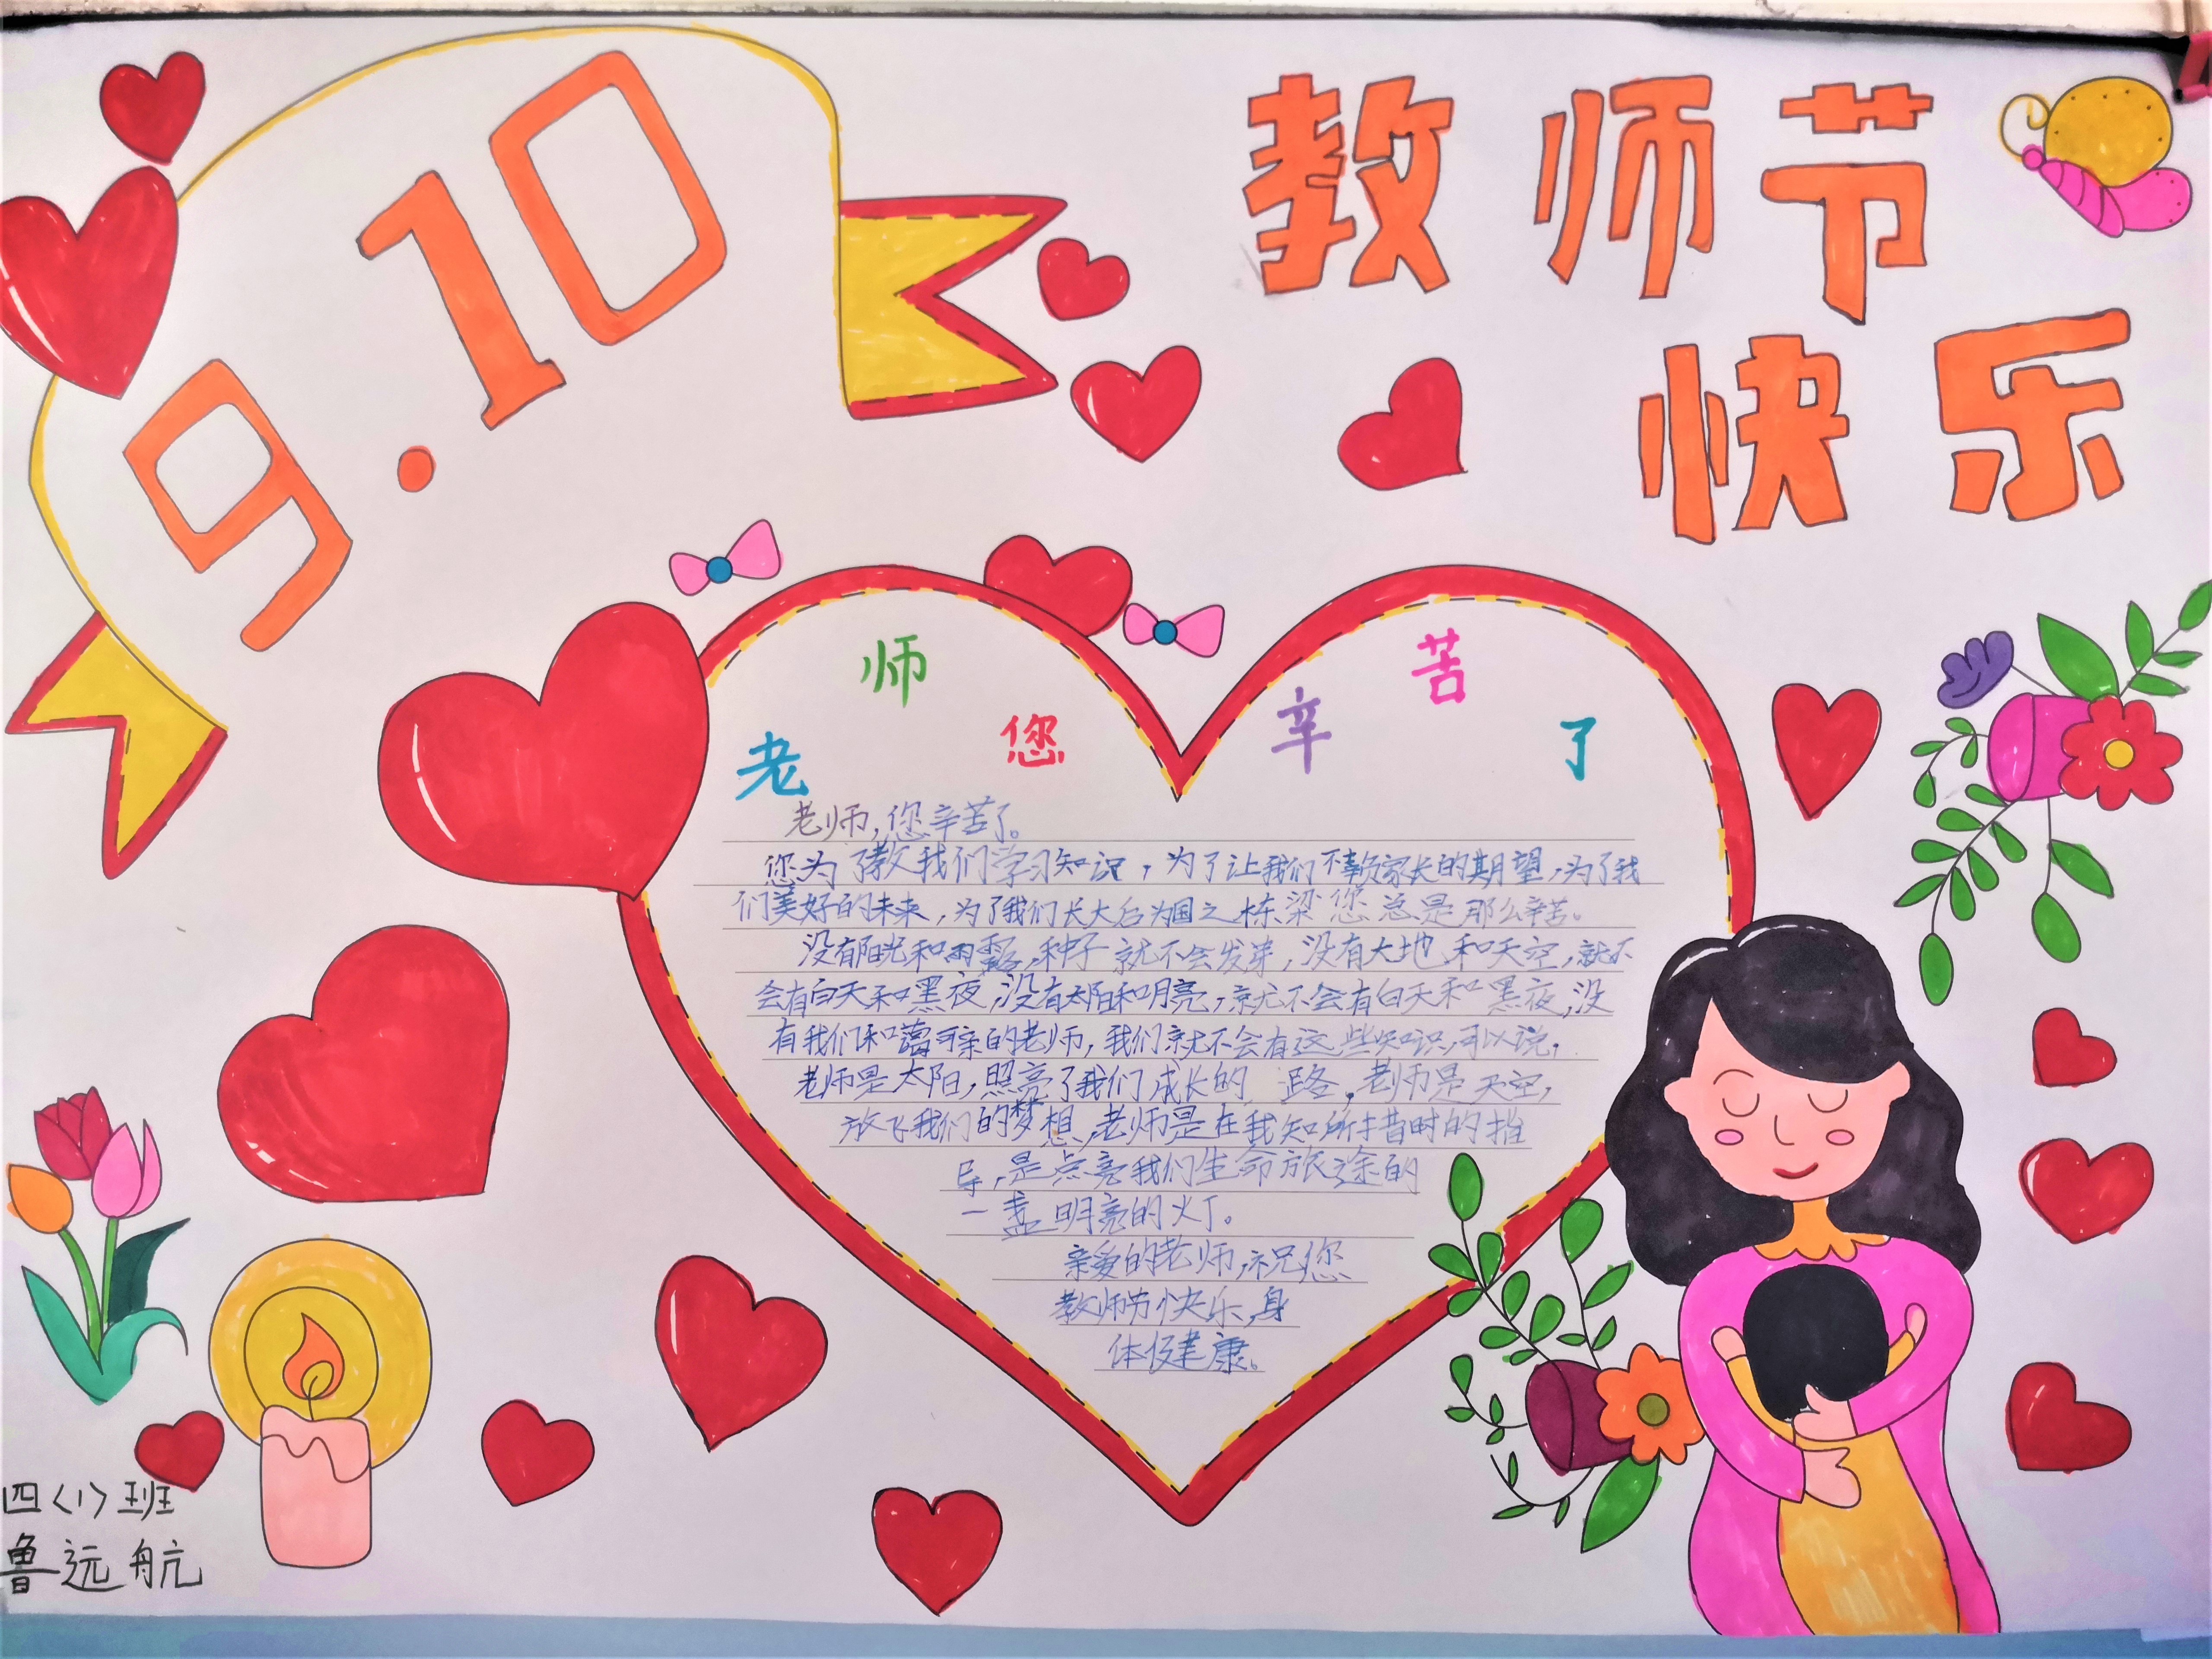 9.10
教师节
快乐
老师您辛苦了
老师,您辛苦了。
您为了教我们学习知识,为了让我们不辜负家长的期望,为了我
们美好的未来,为了我们长大后为国之栋梁您总是那么辛苦。
没有阳光和雨露,种子就不会发芽,没有大地和天空,就不
会有白天和黑夜,没有太阳和月亮,就不会有白天和黑夜,没
有我们和蔼可亲的老师,我们就不会有这些知识,可以说,
老师是太阳,照亮了我们成长的路,老师是天空,
放飞我们的梦想,老师是在我知所措时的指
导,是点亮我们生命旅途的
一盏明亮的灯。
亲爱的老师,祝您
教师节快乐,身
体健康。
四〈1〉班
鲁远航